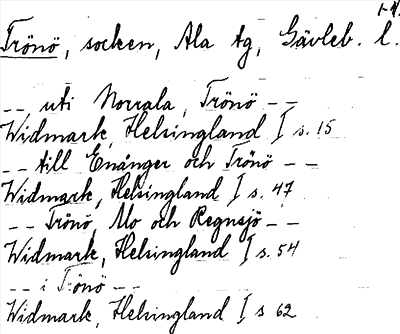 1-4.
Trönö, socken, Ala tg, Gävleb. l.
-- uti Norrala, Trönö --
Widmark, Helsingland I s. 15
-- till Enånger och Trönö --
Widmark, Helsingland I s. 47
-- Trönö, Mo och Regnsjö --
Widmark, Helsingland I s. 54
-- i Trönö --
Widmark, Helsingland I s 62